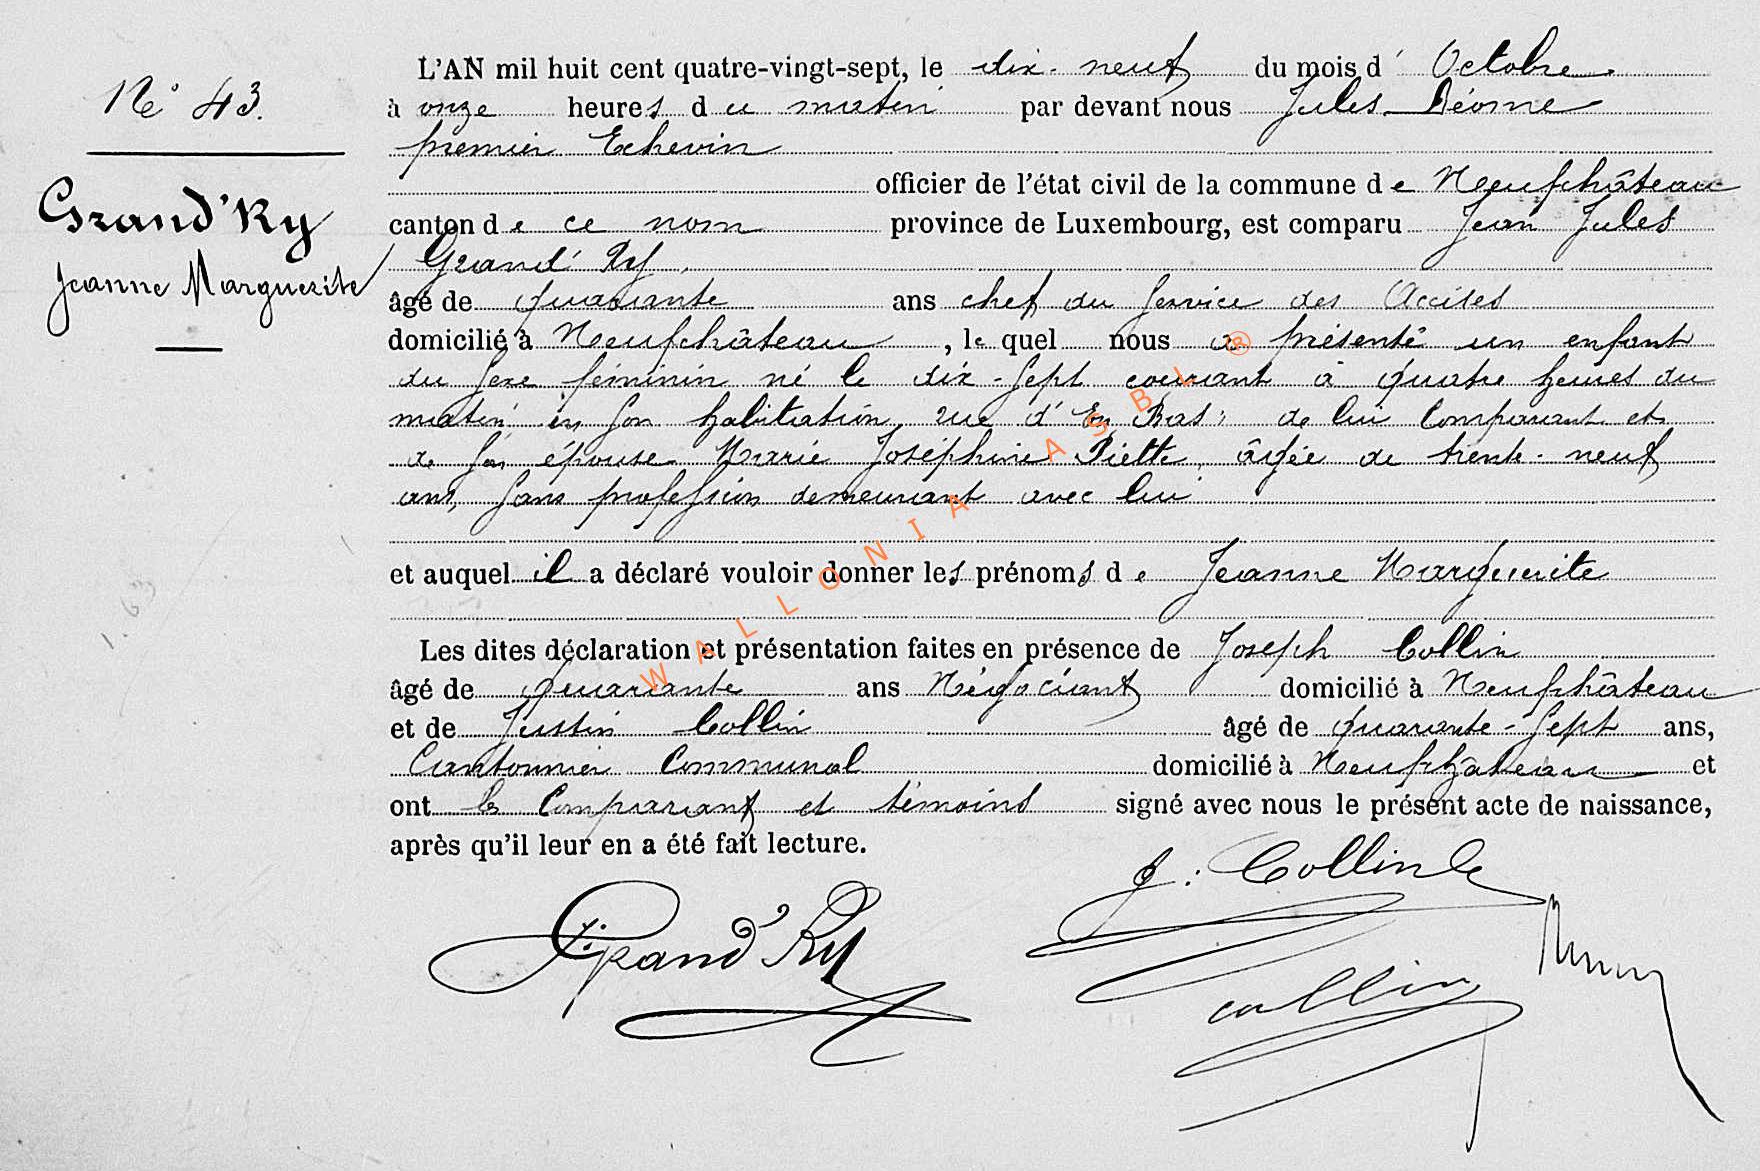 N° 43.
Grand'Ry
Jeanne Marguerite
L'AN mil huit cent quatre-vingt-sept, le dix-neuf du mois d' Octobre
à onze heures du matin par devant nous Jules Déome
premier Echevin
officier de l'état civil de la commune de Neufchâteau
canton de ce nom province de Luxembourg, est comparu Jean Jules
Grand' Ry,
âgé de quarante ans chef du service des Accises
domicilié à Neufchâteau, lequel nous a présenté un enfant
du sexe féminin né le dix-sept courant à quatre heures du
matin en son habitation, rue d'En Bas, de lui comparant et
de son épouse Marie Joséphine Piette, âgée de trente-neuf
ans, sans profession demeurant avec lui
et auquel il a déclaré vouloir donner les prénoms de Jeanne Marguerite
Les dites déclaration et présentation faites en présence de Joseph Collin
âgé de quarante ans Négociant domicilié à Neufchâteau
et de Justin Collin âgé de quarante-sept ans,
Cantonnier Communal domicilié à Neufchâteau et
ont les comparant et témoins signé avec nous le présent acte de naissance,
après qu'il leur en a été fait lecture.
J. Collin
Grand'Ry
collin
WALLONIA ASBL ®
1.63